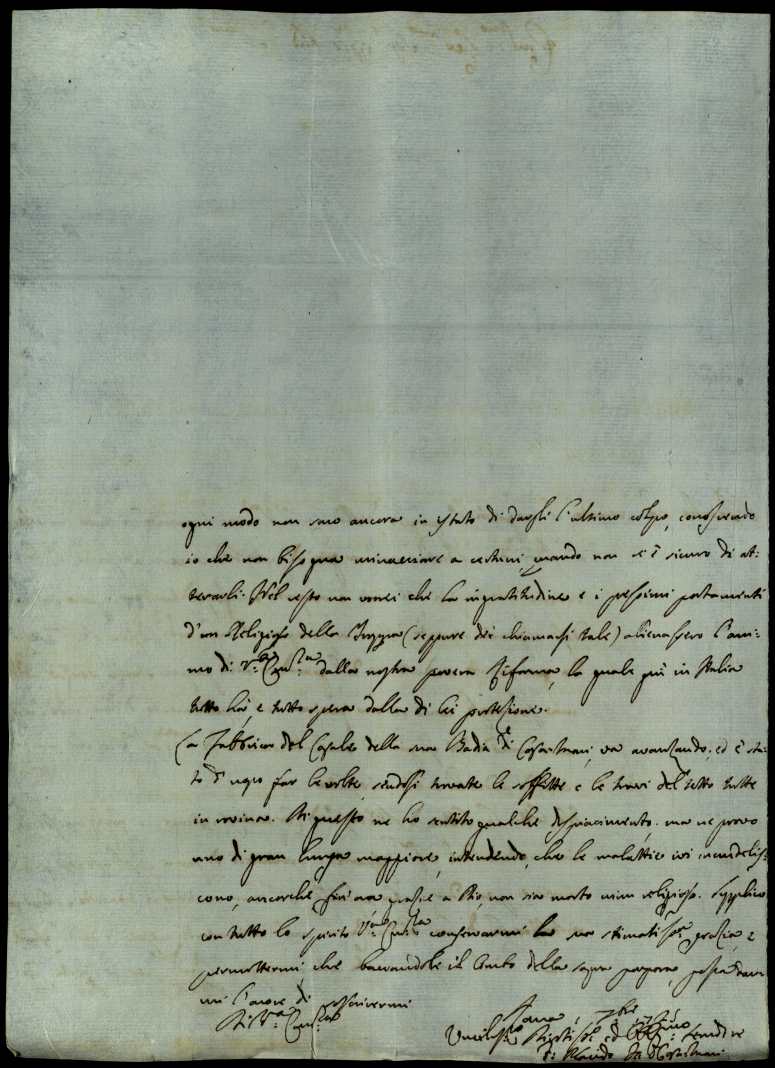 ogni modo non sono ancora in istato di dargli l'ultimo colpo, conoscendo
io che non bisogna minacciare a certuni, quando non si è sicuro di at:
terarli. Nel resto non vorrei che la ingratitudine e i pessimi portamenti
d'un Religioso della Trappa (seppure dei chiamarsi tale) alienassero l'ani:
mo di V.ra Em.za dalla nostra povera Riforma, la quale quì in Italia
tutto hà, e tutto spera dalla di lei protezione.
La fabbrica del Casale della sua Badia di Casamari, va avanzando; ed è sta:
to d'uopo far le volte, sendosi trovate le soffitte e le travi del tetto tutte
in rovina. Di questo ne ho sentito qualche dispiacimento, ma ne provo
uno di gran lunga maggiore, intendendo, che le malattie ivi incrudelis:
cono, ancorchè finora grazie a Dio non sia morto niun religioso. Supplico
con tutto lo spirito V.ra Em.za conservarmi la sua stimatis.ma grazia, e
permettermi che baciandole il lembo della sagra porpora, possa dar
mi l'onore di soscrivermi
Di V.ra Em.za
7bre
Umiliss.mo Servitore
Casamari